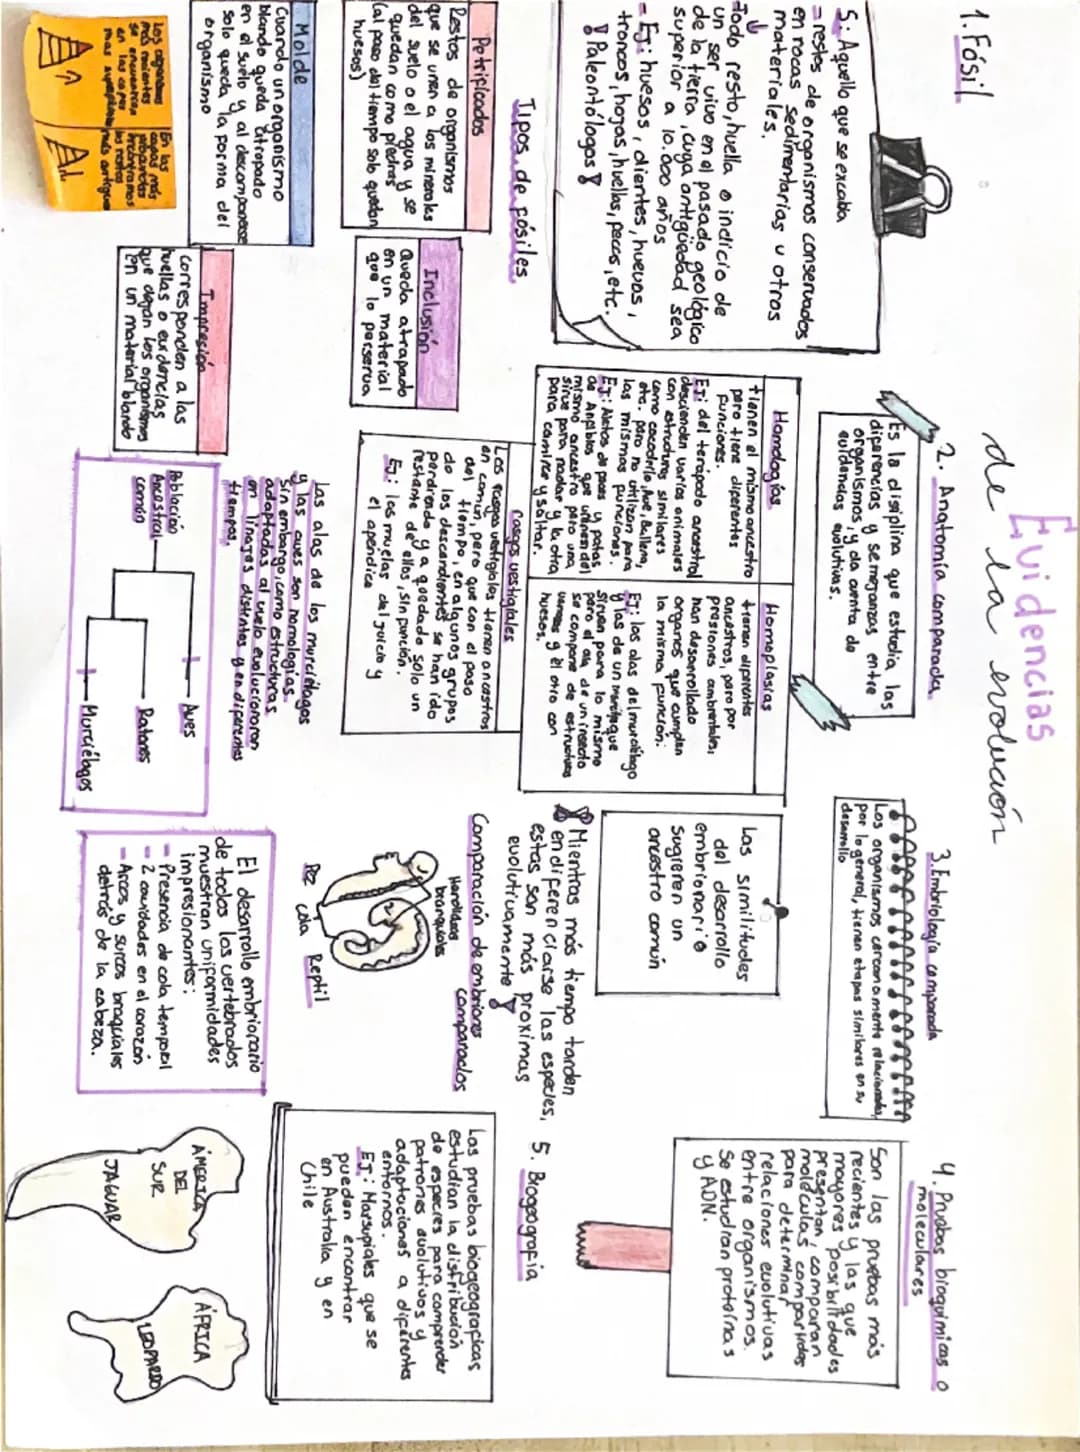 Evidencias
de la evolución
1. Fósil
S: Aquello que se excaba
- restos de organismos conservados
en rocas sedimentarias u otros
materiales.
Todo resto, huella o indicio de
un ser vivo en el pasado geológico
de la tierra, cuya antigüedad sea
superior a 10.000 años
- Ej: huesos, dientes, huevos,
troncos, hojas, huellas, pecas, etc.
! Paleontólogos !
Tipos de fósiles
Petrificados
Restos de organismos
que se unen a los minerales
del suelo o el agua y se
quedan como piedras
(al paso del tiempo solo quedan
huesos)
Inclusión
Queda atrapado
en un material
que lo perserva
Molde
Cuando un organismo
blando queda atrapado
en el suelo y al descomponerse
solo queda la forma del
organismo
Impresión
Corresponden a las
huellas o evidencias
que dejan los organismos
en un material blando
Los organismos
más recientes
se encuentran
en las capas
mas superficiales
En las
capas más
encontramos
los restos
más antiguos
2. Anatomía comparada
Es la disiplina que estudia las
diferencias y semejanzas entre
organismos, y da cuenta de
evidencias evolutivas.
Homologías
tienen el mismo ancestro
pero tiene diferentes
funciones.
Ej: del terapodo ancestral
descienden varios animales
con estructuras similares
como cocodrilo, Ave, Ballena,
etc. pero no utilizan para
las mismas funciones.
Ej: Aletas de peces y patas
de Anfibios que vienen del
mismo ancestro pero una
sirve para nadar y la otra
para caminar y saltar.
Homoplasias
tienen diferentes
ancestros, pero por
presiones ambientales
han desarrollado
organos que cumplen
la misma función:
Ej: las alas del murciélago
y las de un insecto
sirven para lo mismo
pero el ala de un insecto
se compone de estructura
y el otro con
huesos.
rasgos vestigiales
Los rasgos vestigiales tienen ancestros
en común, pero que con el paso
del tiempo, en algunos grupos
de los descendientes se han ido
perdiendo y a quedado solo un
restante de ellos, sin función.
Ej: las muelas del juicio y
el apendice
Las alas de los murciélagos
y las aves son homologías.
Sin embargo, como estructuras
adaptadas al vuelo evolucionaron
en linajes distintos y en diferentes
tiempos.
Población
Ancestral
común
Aves
Ratones
Murciélagos
3. Embriología comparada
Los organismos cercanamente relacionados,
por lo general, tienen etapas similares en su
desarrollo
Las similitudes
del desarollo
embrionario
sugieren un
ancestro común
Mientras más tiempo tarden
en diferenciarse las especies,
estas son más proximas
evolutivamente !
Comparación de embriones
comparados
Hendiduras
branquiales
Pez
cola
Reptil
El desarrollo embrionario
de todos los vertebrados
muestran uniformidades
impresionantes:
- Presencia de cola temporil
- 2 cavidades en el corazón
- Arcos y surcos braquiales
detrás de la cabeza.
4. Pruebas bioquímicas o
moleculares
Son las pruebas más
recientes y las que
mayores posibilidades
presentan, comparan
moléculas compartidas
para determinar
relaciones evolutivas
entre organismos.
Se estudian proteínas
y ADN.
5. Biogeografía
Las pruebas biogeograficas
estudian la distribución
de especies para comprender
patrones evolutivos y
adaptaciones a diferentes
entornos.
Ej: Marsupiales que se
pueden encontrar
en Australia y en
Chile
AMÉRICA
DEL
SUR
JAGUAR
ÁFRICA
LEOPARDO